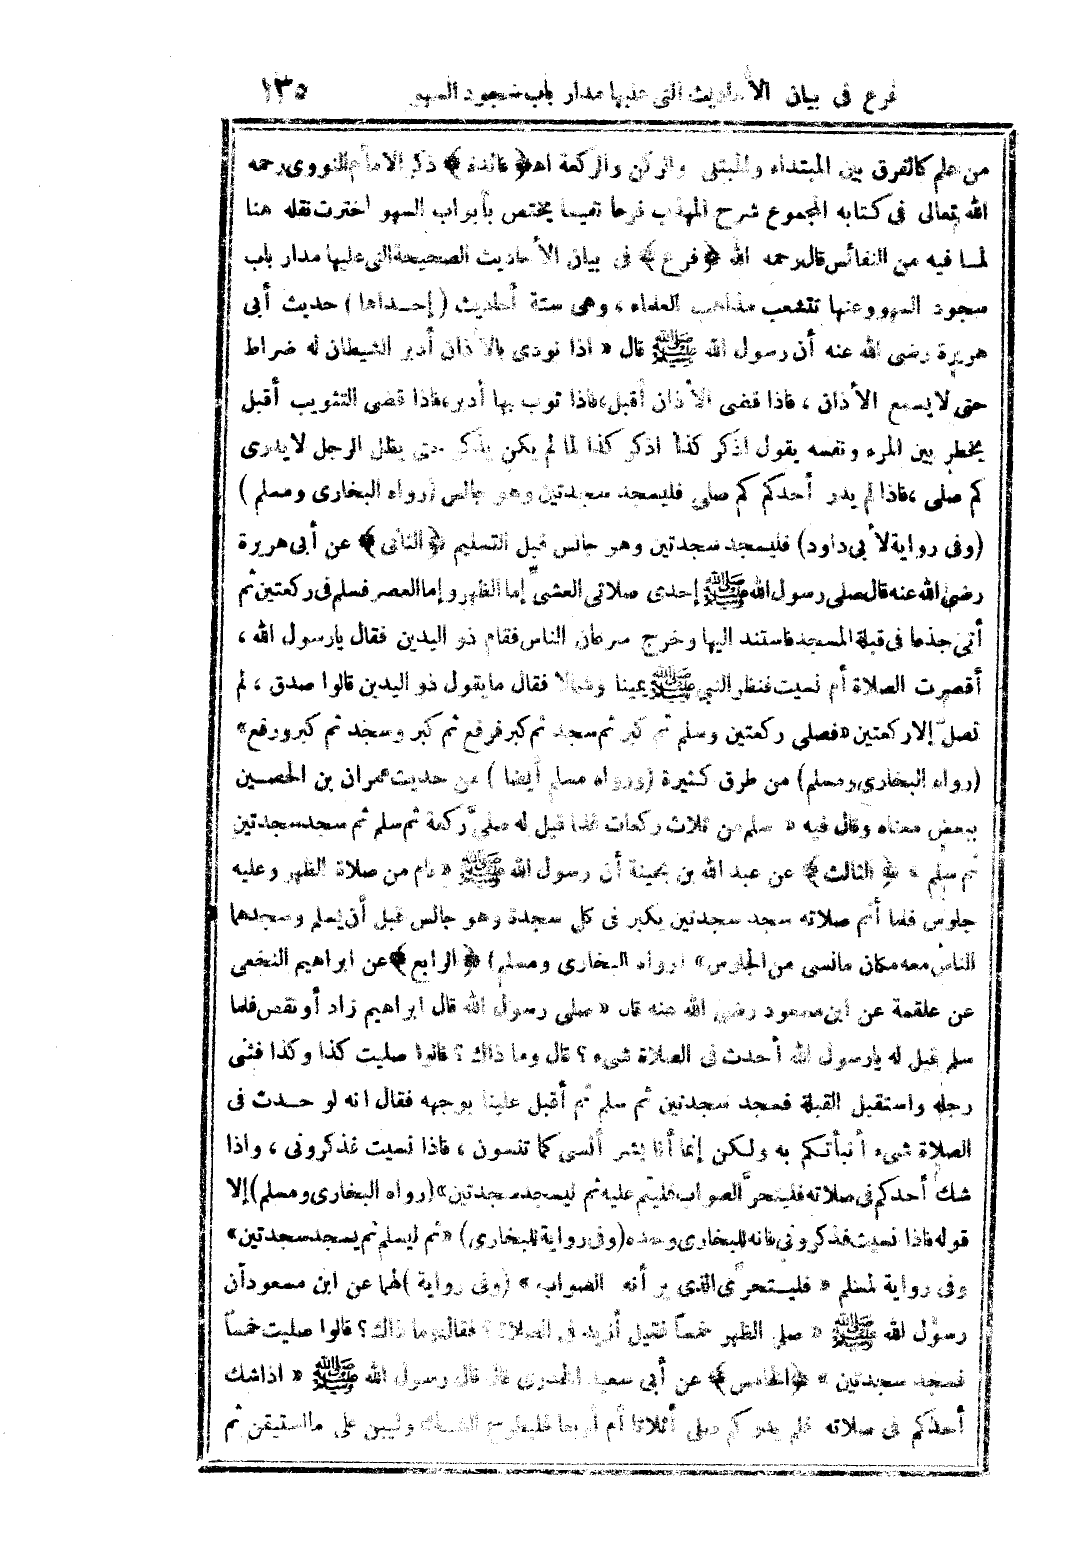 فرع فى بيان الأحاديث التى عليها مدار باب سجود السهو ١٣٥
من علم كالفرق بين المبتداء والمبتنى والركن والركعة اه ﴿ فائدة ﴾ ذكر الامام النووى رحمه
الله تعالى فى كتابه المجموع شرح المهذب فرعا نفيسا يختص بأبواب السهو اخترت نقله هنا
لمـا فيه من النفائس قال رحمه الله ﴿ فرع ﴾ فى بيان الأحاديث الصحيحة التى عليها مدار باب
سجود السهو وعنها تتشعب مذاهب العلماء ، وهى ستة أحاديث ( إحـداها ) حديث أبى
هريرة رضى الله عنه أن رسول الله ﷺ قال « اذا نودى بالأذان أدبر الشيطان له ضراط
حتى لا يسمع الأذان ، فاذا قضى الأذان أقبل ، فاذا ثوب بها أدبر ، فاذا قضى التثويب أقبل
يخطر بين المرء ونفسه يقول اذكر كذا اذكر كذا لما لم يكن يذكر حتى يظل الرجل لا يدرى
كم صلى ، فاذا لم يدر أحدكم كم صلى فليسجد سجدتين وهو جالس ( رواه البخارى ومسلم )
(وفى رواية لأبى داود) فليسجد سجدتين وهو جالس قبل التسليم ﴿ الثانى ﴾ عن أبى هريرة
رضى الله عنه قال صلى رسول الله ﷺ إحدى صلاتى العشىّ إما الظهر وإما العصر فسلم فى ركعتين ثم
أتى جذعا فى قبلة المسجد فاستند اليها وخرج سرعان الناس فقام ذو اليدين فقال يارسول الله ،
أقصرت الصلاة أم نسيت فنظر النبى ﷺ يمينا وشمالا فقال مايقول ذو اليدين قالوا صدق ، لم
تصلّ إلا ركعتين « فصلى ركعتين وسلم ثم كبر ثم سجد ثم كبر فرفع ثم كبر وسجد ثم كبر ورفع »
(رواه البخارى ومسلم) من طرق كثيرة (ورواه مسلم أيضا ) من حديث عمران بن الحصـين
ببعض معناه وقال فيه « سلم من ثلاث ركعات فلما قيل له صلىّ ركعة ثم سلم ثم سجد سجدتين
ثم سلم » ﴿ الثالث ﴾ عن عبد الله بن بحينة أن رسول الله ﷺ « قام من صلاة الظهر وعليه
جلوس فلما أتم صلاته سجد سجدتين يكبر فى كل سجدة وهو جالس قبل أن يسلم وسجدهما
الناس معه مكان مانسى من الجلوس » (رواه البخارى ومسلم) ﴿ الرابع ﴾ عن ابراهيم النخعى
عن علقمة عن ابن مسعود رضى الله عنه قال « صلى رسول الله قال ابراهيم زاد أو نقص فلما
سلم قيل له يارسول الله أحدث فى الصلاة شىء ؟ قال وما ذاك ؟ قالوا صليت كذا وكذا فثنى
رجله واستقبل القبلة فسجد سجدتين ثم سلم ثم أقبل علينا بوجهه فقال انه لو حـدث فى
الصلاة شىء أنبأتـكم به ولـكن إنما أنا بشر أنسى كما تنسون ، فاذا نسيت فذكرونى ، واذا
شك أحدكم فى صلاته فليتحرّ الصواب فليتم عليه ثم ليسجد سجدتين» (رواه البخارى ومسلم) إلا
قوله فاذا نسيت فذكرونى فانه للبخارى وحده (وفى رواية للبخارى) «ثم ليسلم ثم يسجد سجدتين»
وفى رواية لمسلم « فليـتحرّى الذى ير أنه الصواب » (وفى رواية ) لهما عن ابن مسعود أن
رسول الله ﷺ « صلى الظهر خمساً فقيل أزيد فى الصلاة ؟ فقال وما ذاك ؟ قالوا صليت خمساً
فسجد سجدتين » ﴿ الخامس ﴾ عن أبى سعيد الخدرى قال قال رسول الله ﷺ « اذا شك
أحدكم فى صلاته فلم يدر كم صلى أثلاثا أم أربعا فليطرح الشك وليبن على مااستيقن ثم